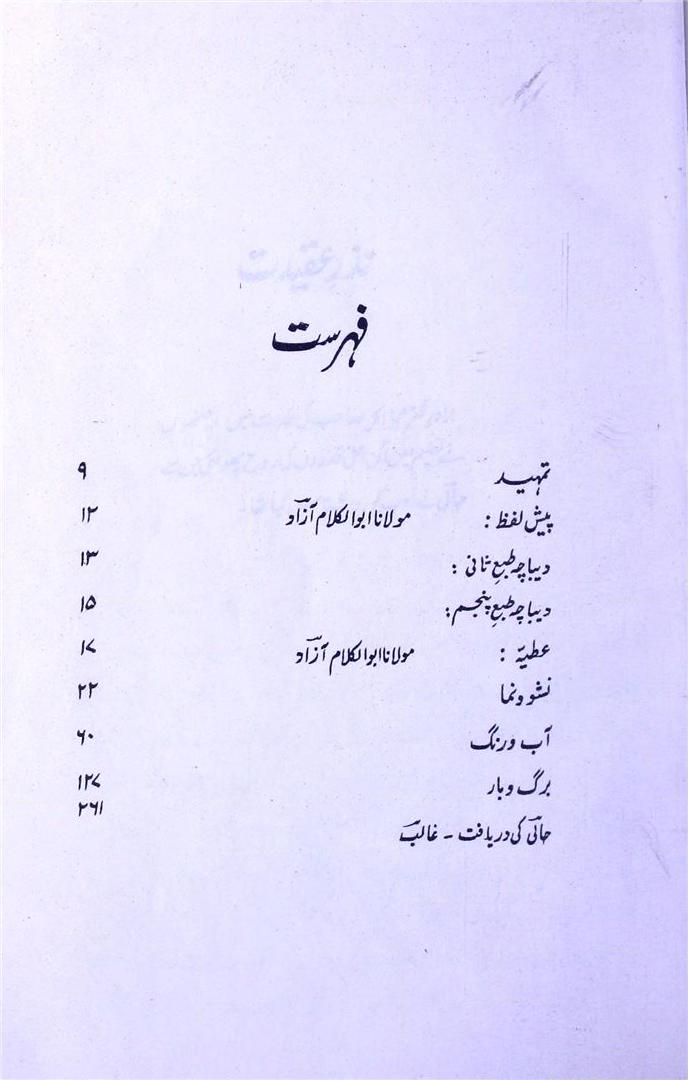 فہرست
تمہید ۹
پیش لفظ : مولانا ابوالکلام آزادؔ ۱۲
دیباچہ طبعِ ثانی : ۱۳
دیباچہ طبعِ پنجم : ۱۵
عطیہّ : مولانا ابوالکلام آزادؔ ۱۷
نشوونما ۲۲
آب ورنگ ۶۰
برگ وبار ۱۲۷
حالیؔ کی دریافت - غالبؔ ۲۶۱
نذرِ عقیدت